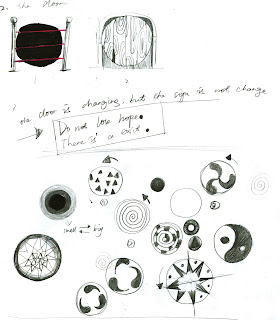 2. the door
1 2
the door is changing, but the sign is not change
Do not lose hope.
There is a exit.
small big